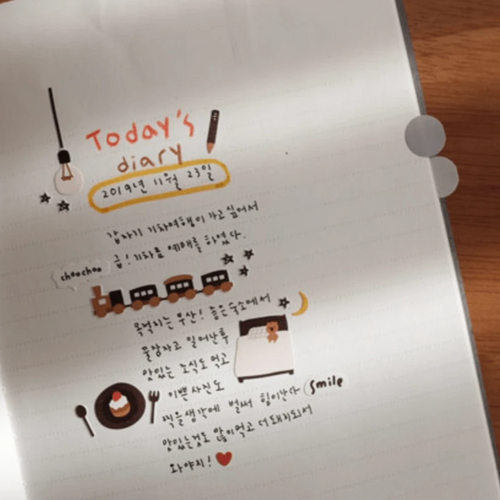 Today's
diary
2019년 11월 23일
갑자기 기차여행이 가고싶어서
급! 기차표 예매를 하였다.
choo choo
목적지는 부산! 좋은숙소에서
꿀잠자고 일어난후
맛있는 조식도 먹고
이쁜사진도
찍을생각에 벌써 힘이난다 smile
맛있는것도 많이먹고 더돼지되어
와야지!